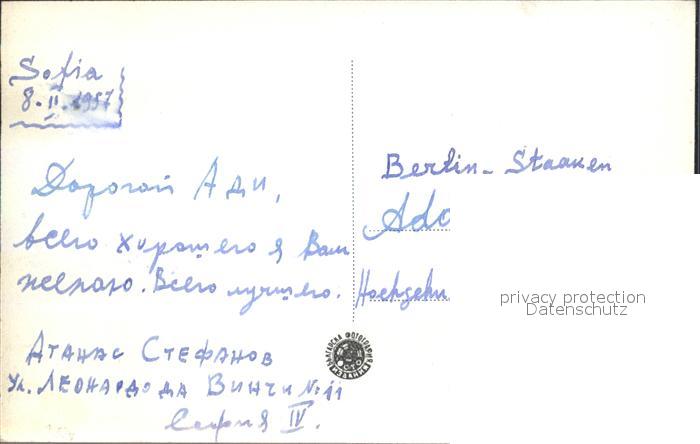 Sofia
8.II.1957
Дорогой Ади,
всего хорошего я Вам
желаю. Всего лучшего.
Атанас Стефанов
Ул. Леонардо да Винчи №11
София IV.
Berlin-Staaken
Ado
privacy protection
Datenschutz